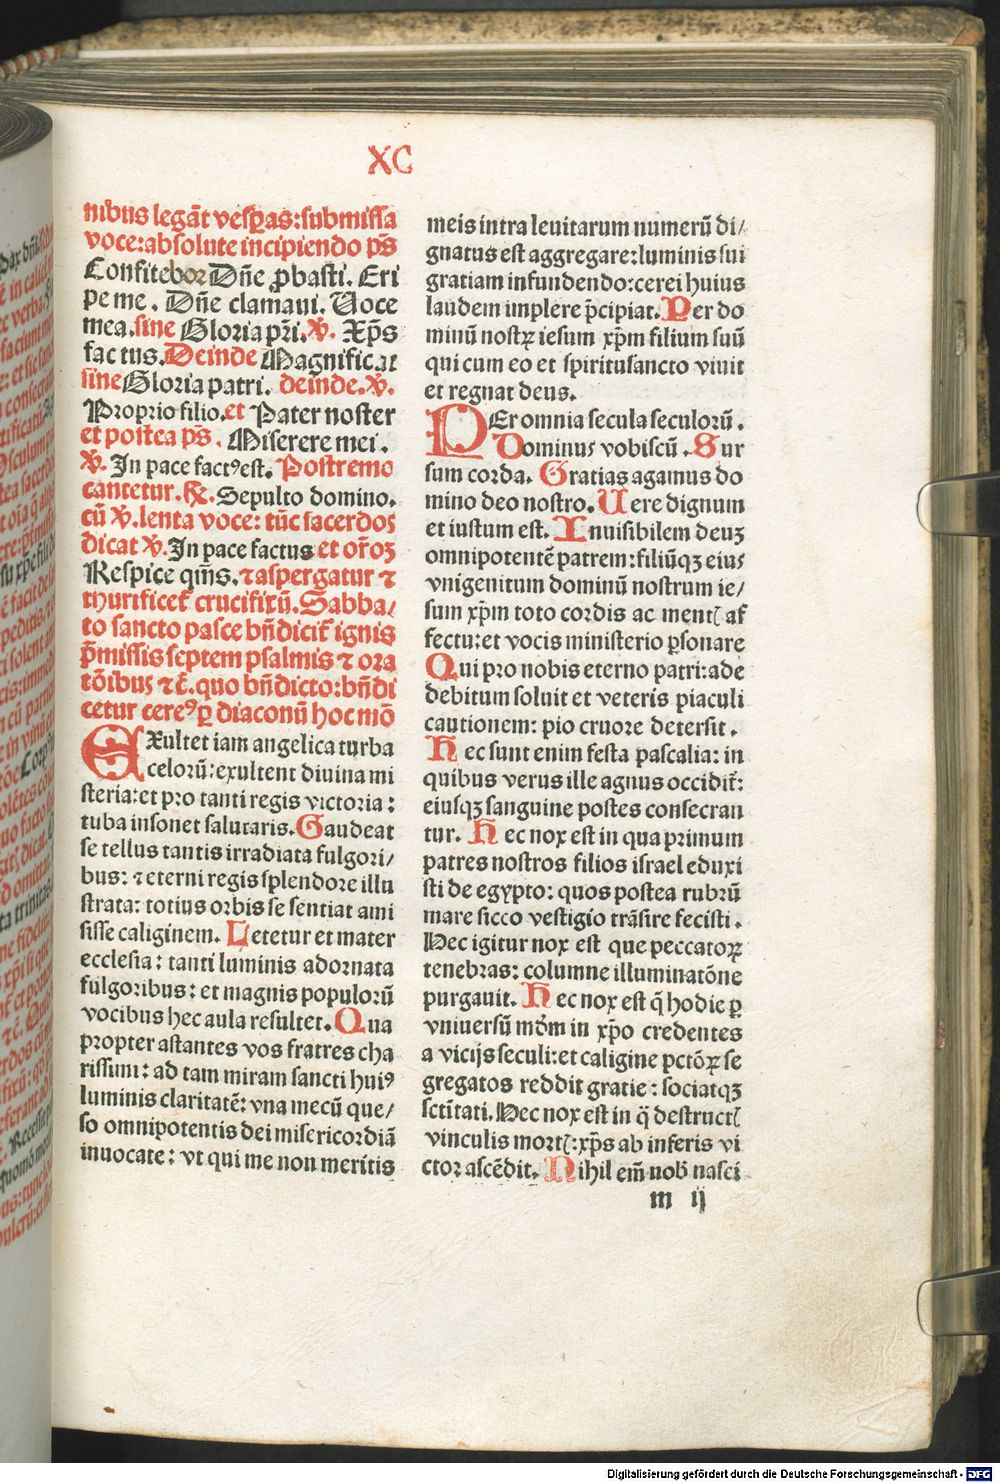 XC
nibus legãt vesꝑas: submissa
voce: absolute incipiendo ps̃
Confitebor Dñe ꝓbasti. Eri
pe me. Dñe clamaui. Uoce
mea. sine Gloria pr̃i. ℣. Xp̃s
factus. Deinde Magnificat
sine Gloria patri. deinde. ℣.
Proprio filio. et Pater noster
et postea ps̃. Miserere mei.
℣. In pace factꝰ est. Postremo
cantetur. ℟. Sepulto domino.
cũ ℣. lenta voce: tũc sacerdos
dicat ℣. In pace factus et or̃oꝫ
Respice qm̃s. ⁊ aspergatur ⁊
thurificet᷑ crucifixũ. Sabba/
to sancto pasce bñdicit᷑ ignis
p̃missis septem psalmis ⁊ ora
tõibus ⁊ c̃. quo bñdicto: bñdi
cetur cereꝰ ꝑ diaconũ hoc mõ
EXultet iam angelica turba
celorũ: exultent diuina mi
steria: et pro tanti regis victoria:
tuba insonet salutaris. Gaudeat
se tellus tantis irradiata fulgori/
bus: ⁊ eterni regis splendore illu
strata: totius orbis se sentiat ami
sisse caliginem. Letetur et mater
ecclesia: tanti luminis adornata
fulgoribus: et magnis populorũ
vocibus hec aula resultet. Qua
propter astantes vos fratres cha
rissimi: ad tam miram sancti huiꝰ
luminis claritatẽ: vna mecũ que/
so omnipotentis dei misericordiã
inuocate: vt qui me non meritis
meis intra leuitarum numerũ di/
gnatus est aggregare: luminis sui
gratiam infundendo: cerei huius
laudem implere p̃cipiat. Per do
minũ nostꝝ iesum xp̃m filium suũ
qui cum eo et spiritusancto viuit
et regnat deus.
PEr omnia secula seculorũ.
Dominus vobiscũ. Sur
sum corda. Gratias agamus do
mino deo nostro. Uere dignum
et iustum est. Inuisibilem deuꝫ
omnipotentẽ patrem: filiũqꝫ eius
vnigenitum dominũ nostrum ie/
sum xp̃m toto cordis ac mentꝭ af
fectu: et vocis ministerio ꝑsonare
Qui pro nobis eterno patri: ade
debitum soluit et veteris piaculi
cautionem: pio cruore detersit.
Hec sunt enim festa pascalia: in
quibus verus ille agnus occidit᷑:
eiusqꝫ sanguine postes consecran
tur. Hec nox est in qua primum
patres nostros filios israel eduxi
sti de egypto: quos postea rubrũ
mare sicco vestigio trãsire fecisti.
Hec igitur nox est que peccatoꝝ
tenebras: columne illuminatõne
purgauit. Hec nox est q̃ hodie ꝑ
vniuersũ mũdm in xp̃o credentes
a vicijs seculi: et caligine pctõꝝ se
gregatos reddit gratie: sociatqꝫ
sctĩtati. Hec nox est in q̃ destructꝭ
vinculis mortꝭ: xp̃s ab inferis vi
ctor ascẽdit. Nihil em̃ nob̃ nasci
m ij
Digitalisierung gefördert durch die Deutsche Forschungsgemeinschaft - DFG